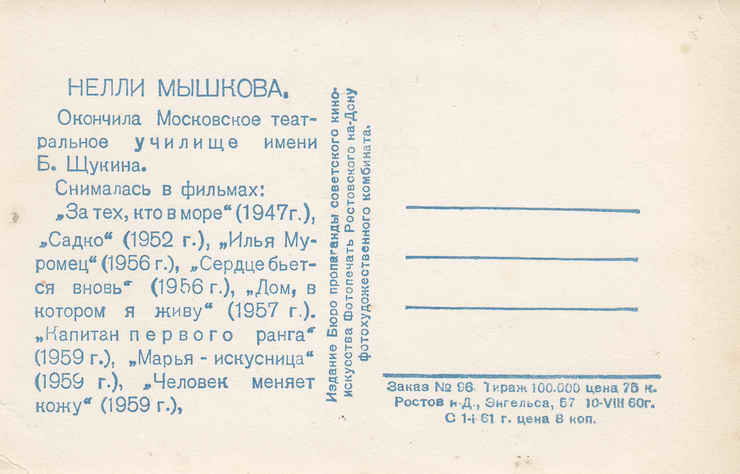 НЕЛЛИ МЫШКОВА.
Окончила Московское теат-
ральное училище имени
Б. Щукина.
Снималась в фильмах:
„За тех, кто в море“ (1947г.),
„Садко“ (1952 г.), „Илья Му-
ромец“ (1956 г.), „Сердце бьет-
ся вновь“ (1956 г.), „Дом, в
котором я живу“ (1957 г.).
„Капитан первого ранга“
(1959 г.), „Марья - искусница“
(1959 г.), „Человек меняет
кожу“ (1959 г.),
Издание Бюро пропаганды советского кино-
искусства Фотопечать Ростовского на-Дону
фотохудожественного комбината.
Заказ № 96 Тираж 100.000 цена 75 к.
Ростов н-Д., Энгельса, 57 10-VIII 60г.
С 1-I 61 г. цена 8 коп.